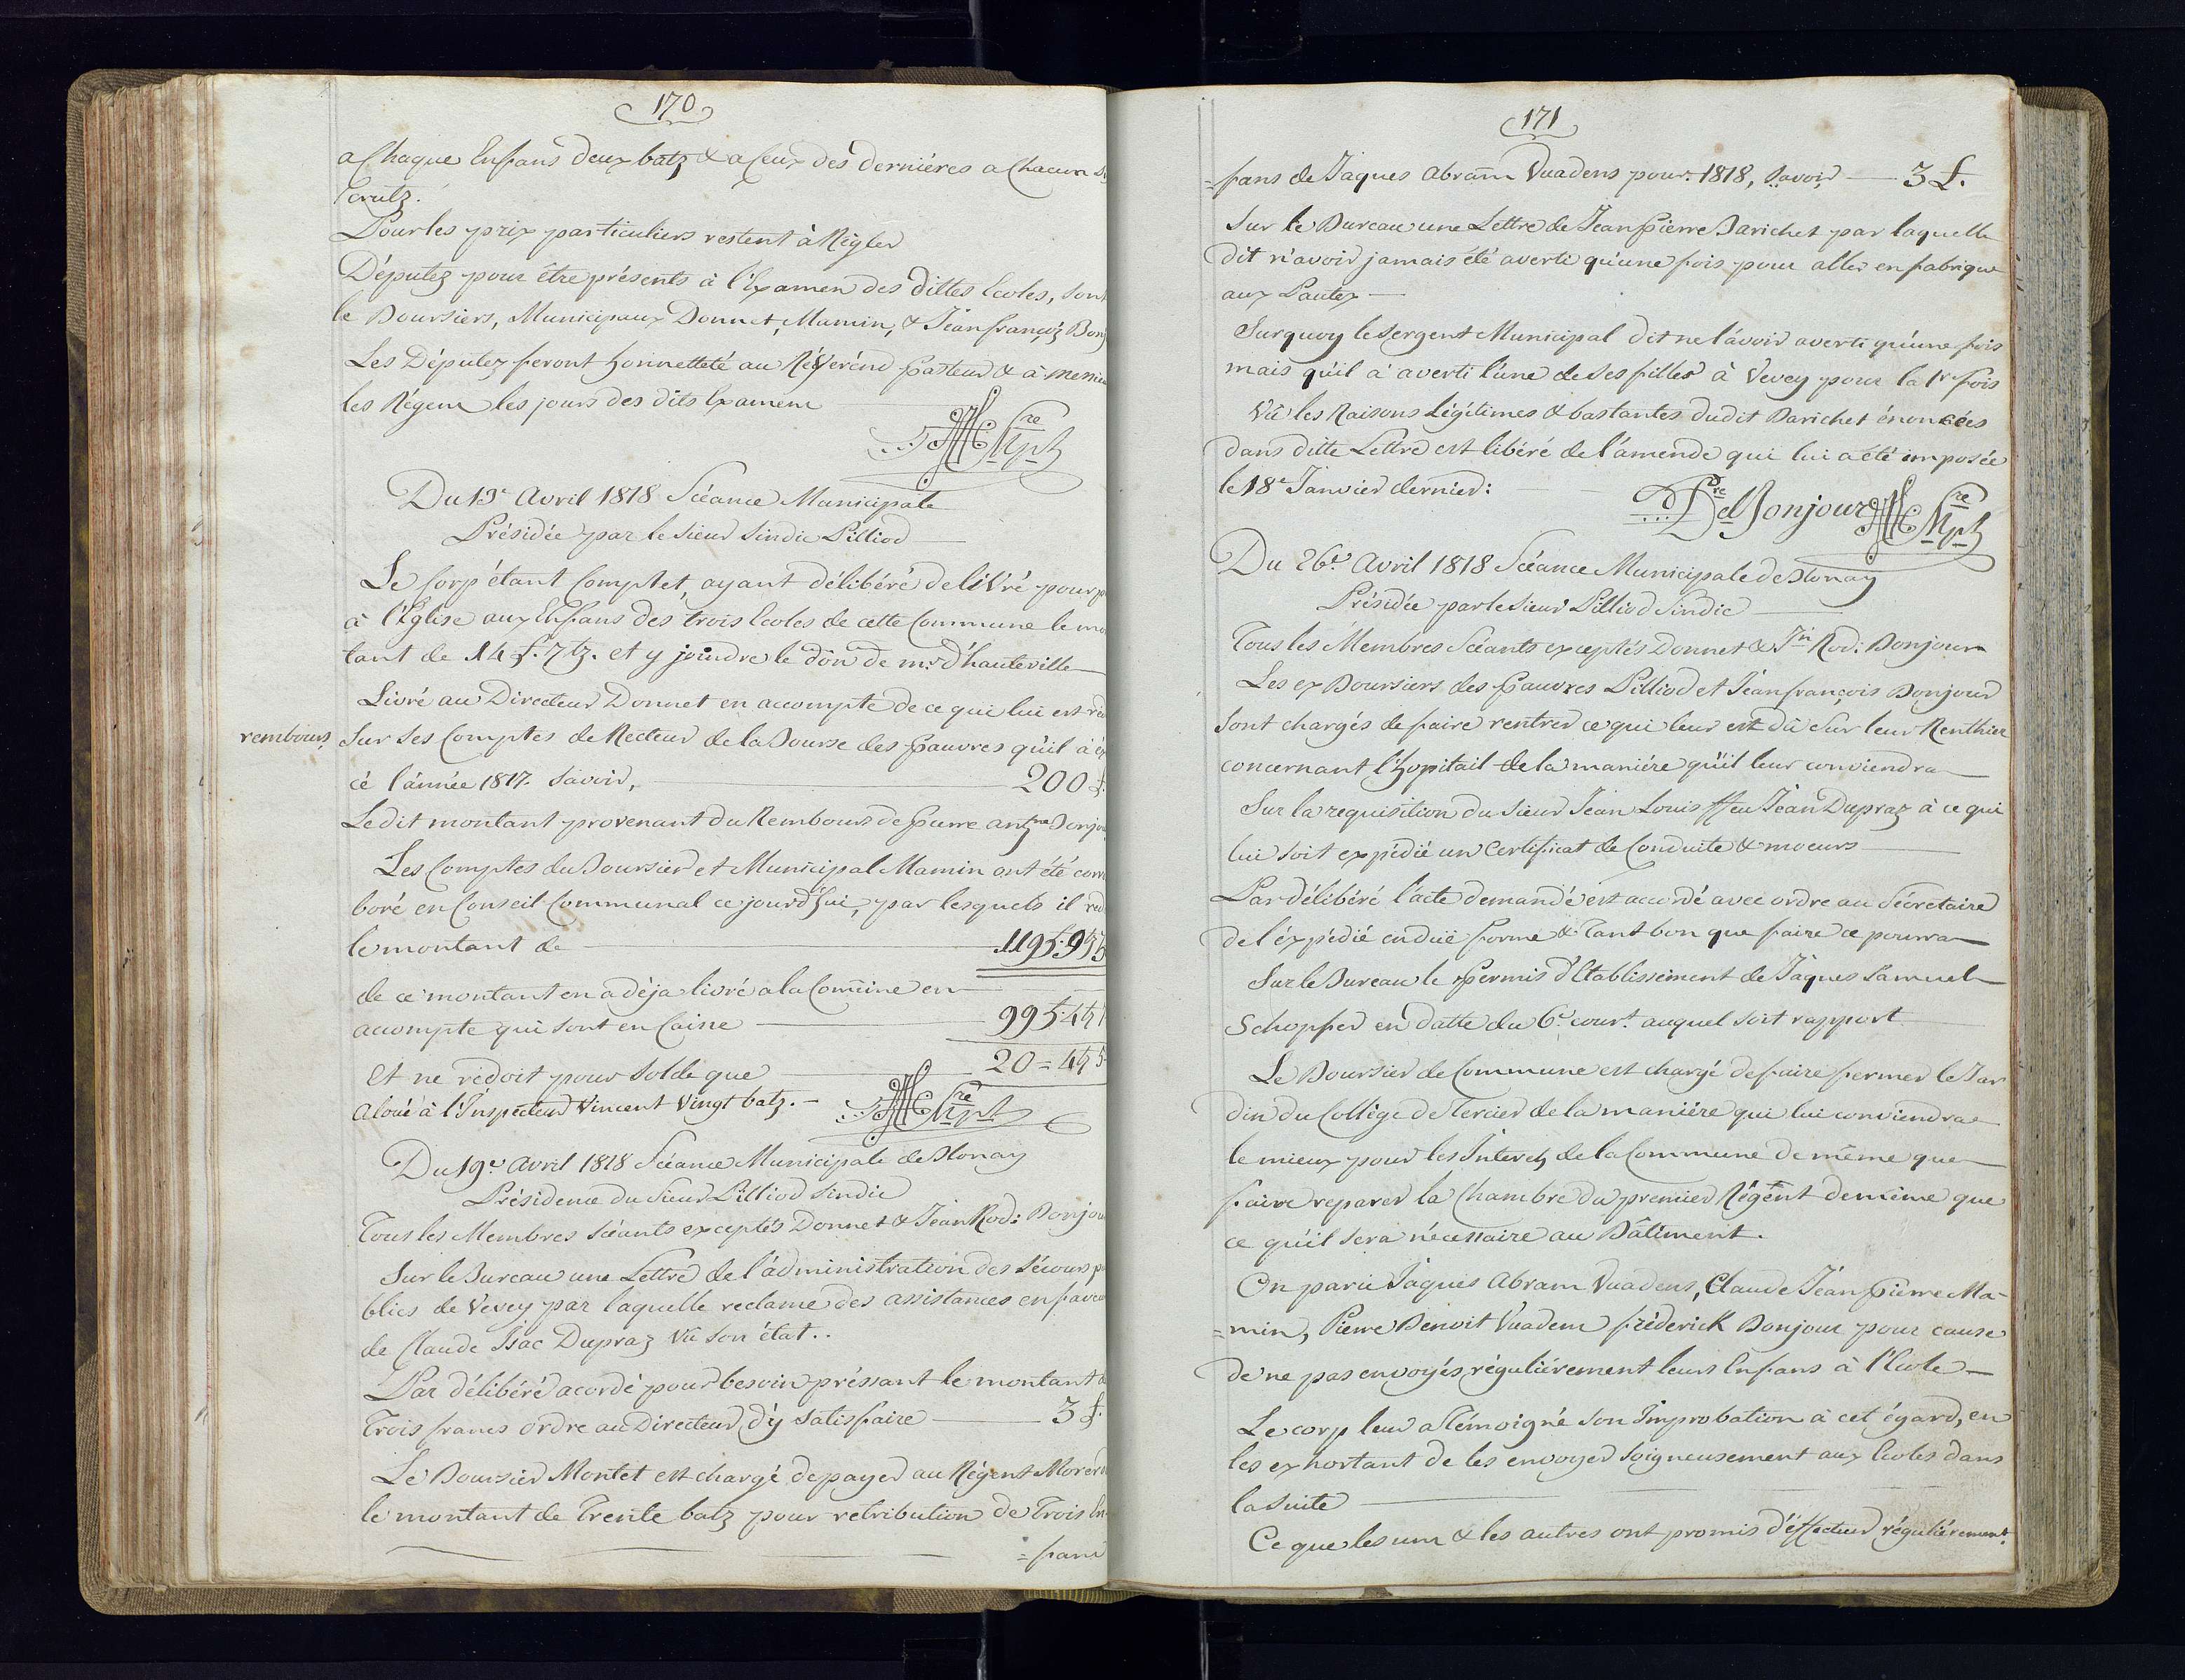 170
a Chaque Enfans deux batz & a Ceux des derniéres a Chacun
Crutz.
Pour les prix particuliers restent à Régler
Députez pour être présents à l'Examen des dittes Ecoles, sont
le Boursiers, Municipaux Donnet, Mamin, & Jean françoiz Bonj
Les Députez feront honnetteté au Révérénd Pasteur & à messieu
les Régens les jours des dits Examens
Du 13e Avril 1818 Scéance Municipale
Présidée par le Sieur Sindic Pilliod
Le Corp étant Complet, ayant délibéré de livré pour
à l'Eglise aux Enfans des trois Ecoles de cette Commune le mon
tant de 14 f. 7 tz. et y joindre le dôn de mr. d'hauteville
Livré au Directeur Donnet en accompte de ce qui lui est
rembours
Sur ses Comptes de Recteur de la Bourse des Pauvres qu'il à
cé l'année 1817. Savoir, 200 f.
Ledit montant provenant du Rembours de Pierre Bonjou
Les Comptes du Boursier et Municipal Mamin ont été
boré en Conseil Communal ce jourd'hui, par lesquels il
le montant de
de ce montant en a déja livré a la Comune en
accompte qui sont en Caisse
et ne redoit pour Solde que
Aloué à l'Inspecteur Vincent Vingt batz.
Du 19e Avril 1818 Scéance Municipale de Blonay
Présidence du Sieur Pilliod Sindic
Tous les Membres Scéants exceptés Donnet & Jean Rod: Bonjou
Sur le Bureau une Lettre de l'administration des Sécours
blics de Vevey par laquelle reclame des assistances en faveu
de Claude Isac Dupraz Vû son état..
Par délibéré acordé pour besoin préssant le montant
Trois francs ordre au Directeur d'y Satisfaire 3 f.
Le Boursier Montet est chargé de payer au Régent
le montant de Trente batz pour retribution de Trois En
=fans
171
=fans de Jaques Abram Vuadens pour 1818, Savoir 3 f.
Sur le Bureau une Lettre de Jean Pierre Barichet par laquelle
dit n'avoir jamais été averti qu'une fois pour aller en fabrique
aux
Surquoy le Sergent Municipal dit ne l'avoir averti qu'une fois
mais qu'il à averti l'une de ses filles à Vevey pour la 1re fois
Vû les Raisons Légitimes & bastantes dudit Barichet énoncées
dans ditte Lettre est libéré de l'amende qui lui a été imposée
le 18e Janvier dernier:
Bonjour
Du 26e Avril 1818 Scéance Municipale de Blonay
Présidée par le Sieur Pilliod Sindic
Tous les Membres Scéants exceptés Donnet & Jn Rod: Bonjour
Les ex Boursiers des Pauvres Pilliod et Jean françois Bonjour
Sont chargés de faire rentrer ce qui leur est dû sur leur Renthier
concernant l'hopitail de la maniére qu'il leur conviendra
Sur la requisition du Sieur Jean Louis ffeu Jean Dupraz à ce qui
lui soit expédié un Certificat de Conduite & moeurs
Par délibéré l'acte demandé est accordé avec ordre au Sécretaire
de l'éxpédié en due forme & Tant bon que faire ce pourra
Sur le Bureau le Permis d'Etablissement de Jaques Samuel
Schopfer en datte du 6e court. auquel soit rapport
Le Boursier de Commune est chargé de faire fermer le Jar
din du Collège de Tercier de la maniére qui lui conviendra
le mieux pour les Interets de la Commune de même que
faire reparer la Chambre du premier Régent de même que
ce qu'il sera nécessaire au Bâtiment.
On paru Jaques Abram Vuadens, Claude Jean Pierre Ma-
=min, Pierre Benoit Vuadens fréderick Bonjour pour cause
de ne pas envoyés réguliérement leurs Enfans à l'Ecole
Le corp leur a Témoigné son Improbation à cet égard, en
les exhortant de les envoyer soigneusement aux Ecoles dans
la Suite
Ce que les uns & les autres ont promis d'éffectuer réguliérement.